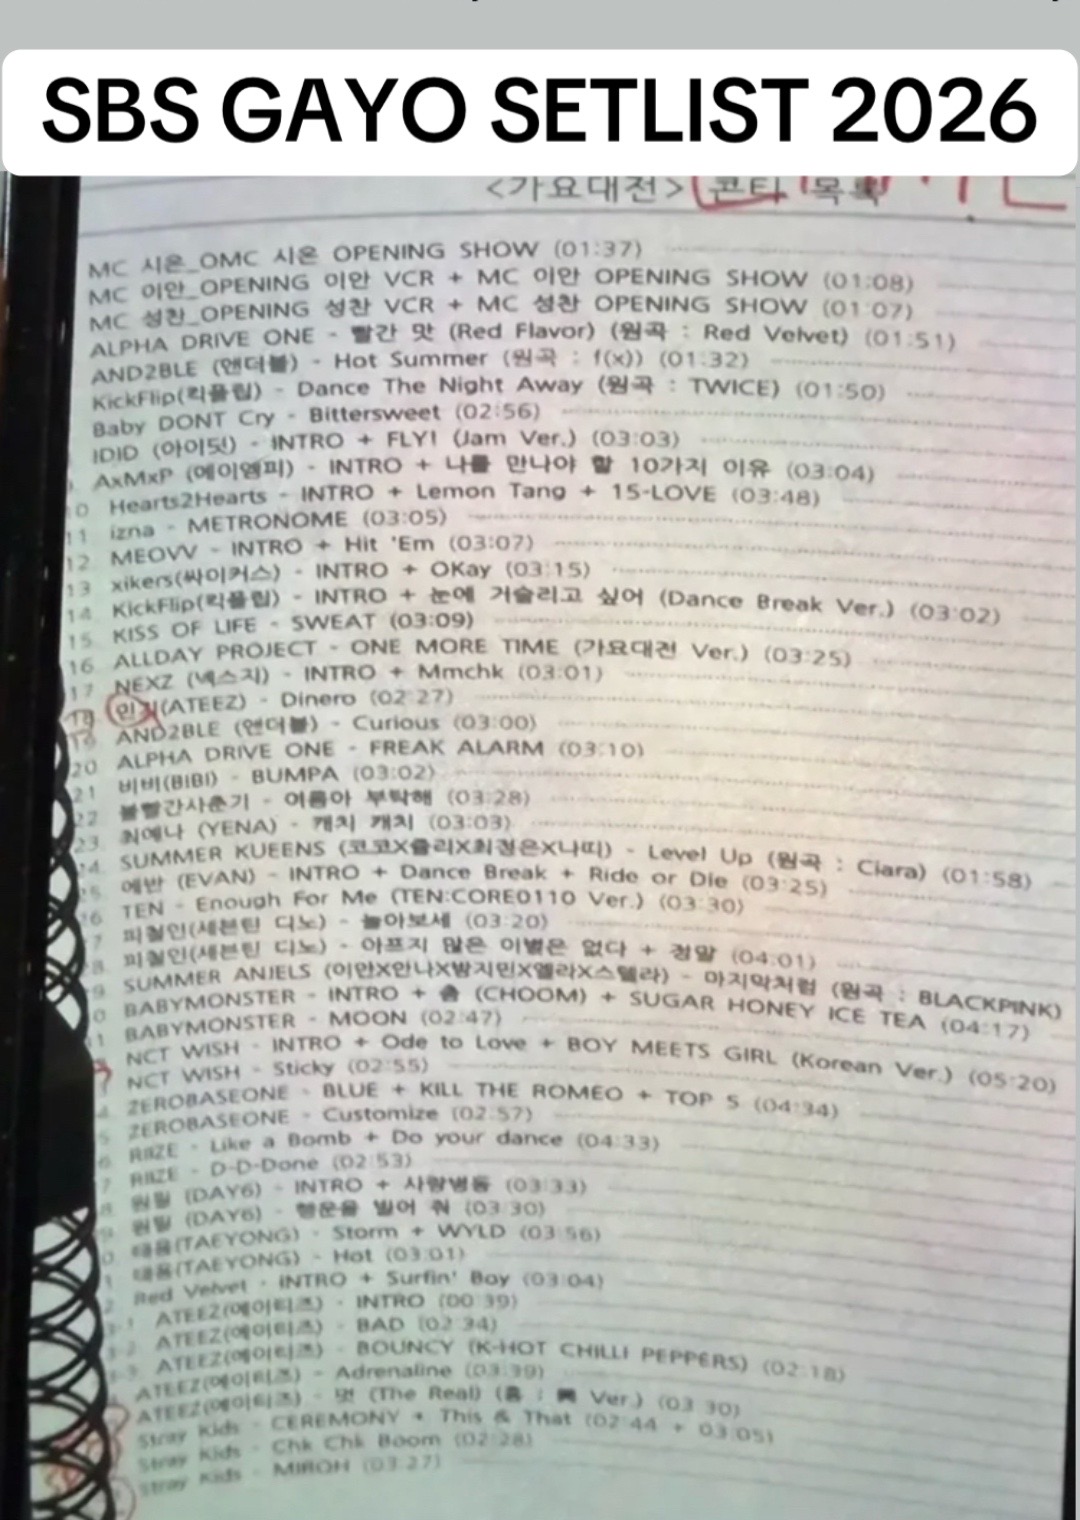 SBS GAYO SETLIST 2026
<가요대전> 콘티 목록
MC 시온_OMC 시온 OPENING SHOW (01:37)
MC 이안_OPENING 이안 VCR + MC 이안 OPENING SHOW (01:08)
MC 성찬_OPENING 성찬 VCR + MC 성찬 OPENING SHOW (01:07)
ALPHA DRIVE ONE - 빨간 맛 (Red Flavor) (원곡 : Red Velvet) (01:51)
AND2BLE (앤더블) - Hot Summer (원곡 : f(x)) (01:32)
KickFlip(킥플립) - Dance The Night Away (원곡 : TWICE) (01:50)
Baby DONT Cry - Bittersweet (02:56)
IDID (아이딧) - INTRO + FLY! (Jam Ver.) (03:03)
AxMxP (에이엠피) - INTRO + 나를 만나야 할 10가지 이유 (03:04)
0 Hearts2Hearts - INTRO + Lemon Tang + 15-LOVE (03:48)
11 izna - METRONOME (03:05)
12 MEOVV - INTRO + Hit 'Em (03:07)
13 xikers(싸이커스) - INTRO + OKay (03:15)
14 KickFlip(킥플립) - INTRO + 눈에 거슬리고 싶어 (Dance Break Ver.) (03:02)
15 KISS OF LIFE - SWEAT (03:09)
16 ALLDAY PROJECT - ONE MORE TIME (가요대전 Ver.) (03:25)
17 NEXZ (넥스지) - INTRO + Mmchk (03:01)
18 민기(ATEEZ) - Dinero (02:27)
19 AND2BLE (앤더블) - Curious (03:00)
20 ALPHA DRIVE ONE - FREAK ALARM (03:10)
21 비비(BIBI) - BUMPA (03:02)
22 볼빨간사춘기 - 여름아 부탁해 (03:28)
23 최예나 (YENA) - 캐치 캐치 (03:03)
4 SUMMER KUEENS (코코X쥴리X최정은X나띠) - Level Up (원곡 : Ciara) (01:58)
5 에반 (EVAN) - INTRO + Dance Break + Ride or Die (03:25)
6 TEN - Enough For Me (TEN:CORE0110 Ver.) (03:30)
7 피철인(세븐틴 디노) - 놀아보세 (03:20)
8 피철인(세븐틴 디노) - 아프지 않은 이별은 없다 + 정말 (04:01)
9 SUMMER ANJELS (이안X안나X방지민X엘라X스텔라) - 마지막처럼 (원곡 : BLACKPINK)
0 BABYMONSTER - INTRO + 춤 (CHOOM) + SUGAR HONEY ICE TEA (04:17)
1 BABYMONSTER - MOON (02:47)
NCT WISH - INTRO + Ode to Love + BOY MEETS GIRL (Korean Ver.) (05:20)
NCT WISH - Sticky (02:55)
4 ZEROBASEONE - BLUE + KILL THE ROMEO + TOP 5 (04:34)
5 ZEROBASEONE - Customize (02:57)
6 RIIZE - Like a Bomb + Do your dance (04:33)
7 RIIZE - D-D-Done (02:53)
8 원필 (DAY6) - INTRO + 사랑병동 (03:33)
9 원필 (DAY6) - 행운을 빌어 줘 (03:30)
0 태용(TAEYONG) - Storm + WYLD (03:56)
1 태용(TAEYONG) - Hot (03:01)
2 Red Velvet - INTRO + Surfin' Boy (03:04)
-1 ATEEZ(에이티즈) - INTRO (00:39)
-2 ATEEZ(에이티즈) - BAD (02:34)
-3 ATEEZ(에이티즈) - BOUNCY (K-HOT CHILLI PEPPERS) (02:18)
ATEEZ(에이티즈) - Adrenaline (03:39)
ATEEZ(에이티즈) - 멋 (The Real) (흥 : 興 Ver.) (03:30)
Stray Kids - CEREMONY + This & That (02:44 + 03:05)
Stray Kids - Chk Chk Boom (02:28)
Stray Kids - MIROH (03:27)